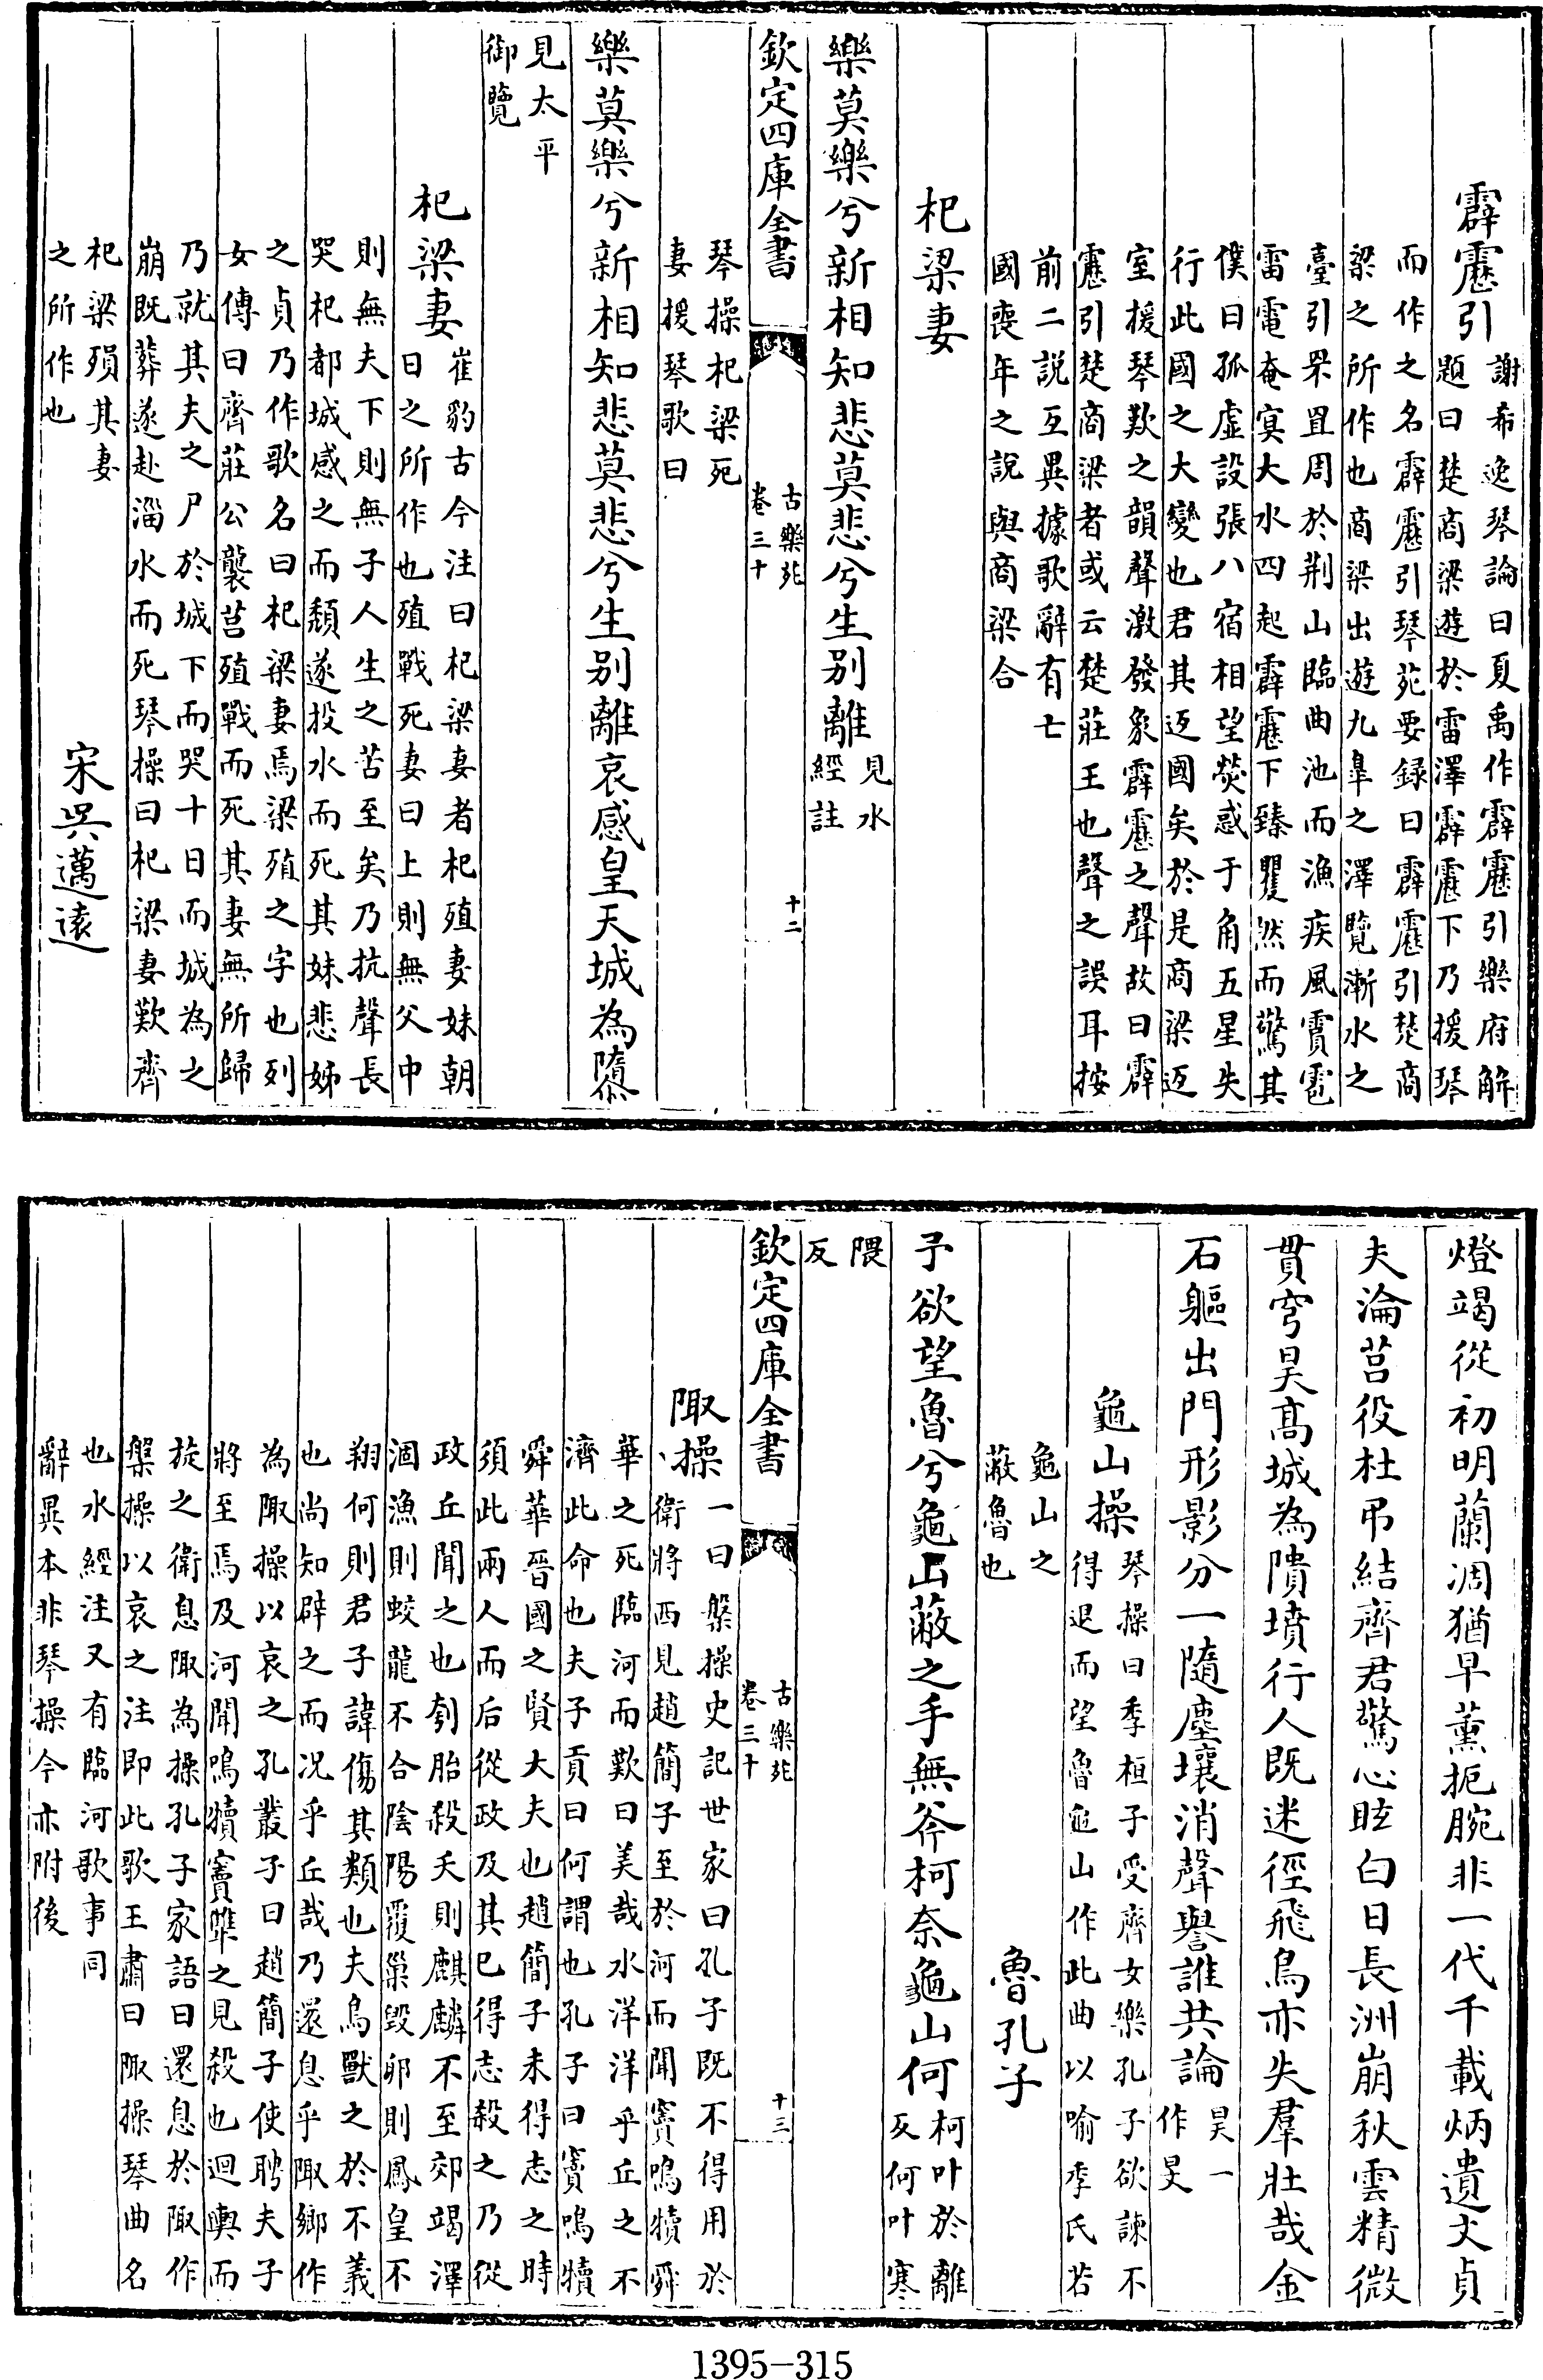 霹靂引
謝希逸琴論曰夏禹作霹靂引樂府解
題曰楚商梁遊於雷澤霹靂下乃援琴
而作之名霹靂引琴苑要録曰霹靂引楚商
梁之所作也商梁出遊九臯之澤覽漸水之
臺引罘罝周於荆山臨曲池而漁疾風霣雹
雷電奄㝠大水四起霹靂下臻瞿然而驚其
僕曰孤虚設張八宿相望熒惑于角五星失
行此國之大變也君其返國矣於是商梁返
室援琴歎之韻聲激發象霹靂之聲故曰霹
靂引楚商梁者或云楚莊王也聲之誤耳按
前二説互異據歌辭有七
國喪年之説與商梁合
杞梁妻
樂莫樂兮新相知悲莫悲兮生别離
見水
經註
欽定四庫全書
古樂苑
卷三十
十二
琴操杞梁死
妻援琴歌曰
樂莫樂兮新相知悲莫悲兮生别離哀感皇天城為隳
見太平
御覽
杞梁妻
崔豹古今注曰杞梁妻者杞殖妻妹朝
日之所作也殖戰死妻曰上則無父中
則無夫下則無子人生之苦至矣乃抗聲長
哭杞都城感之而頽遂投水而死其妹悲姊
之貞乃作歌名曰杞梁妻焉梁殖之字也列
女傳曰齊莊公襲莒殖戰而死其妻無所歸
乃就其夫之尸於城下而哭十日而城為之
崩既葬遂赴淄水而死琴操曰杞梁妻歎齊
杞梁殞其妻
之所作也
宋吳邁遠
燈竭從初明蘭凋猶早薰扼腕非一代千載炳遺文貞
夫淪莒役杜弔結齊君驚心眩白日長洲崩秋雲精微
貫穹昊髙城為隤墳行人既迷徑飛鳥亦失羣壯哉金
石軀出門形影分一隨塵壤消聲譽誰共論
昊一
作旻
龜山操
琴操曰季桓子受齊女樂孔子欲諫不
得退而望魯龜山作此曲以喻季氏若
龜山之
蔽魯也
魯孔子
予欲望魯兮龜山蔽之手無斧柯奈龜山何
柯叶於離
反何叶寒
隈
反
欽定四庫全書
古樂苑
卷三十
十三
陬操
一曰槃操史記世家曰孔子既不得用於
衛將西見趙簡子至於河而聞竇鳴犢舜
華之死臨河而歎曰美哉水洋洋乎丘之不
濟此命也夫子貢曰何謂也孔子曰竇鳴犢
舜華晉國之賢大夫也趙簡子未得志之時
須此兩人而后從政及其已得志殺之乃從
政丘聞之也刳胎殺夭則麒麟不至郊竭澤
涸漁則蛟龍不合陰陽覆巢毀卵則鳳皇不
翔何則君子諱傷其類也夫鳥獸之於不義
也尚知辟之而况乎丘哉乃還息乎陬鄉作
為陬操以哀之孔叢子曰趙簡子使聘夫子
將至焉及河聞鳴犢竇犨之見殺也迴輿而
旋之衛息陬為操孔子家語曰還息於陬作
槃操以哀之注即此歌王肅曰陬操琴曲名
也水經注又有臨河歌事同
辭異本非琴操今亦附後
1395-315